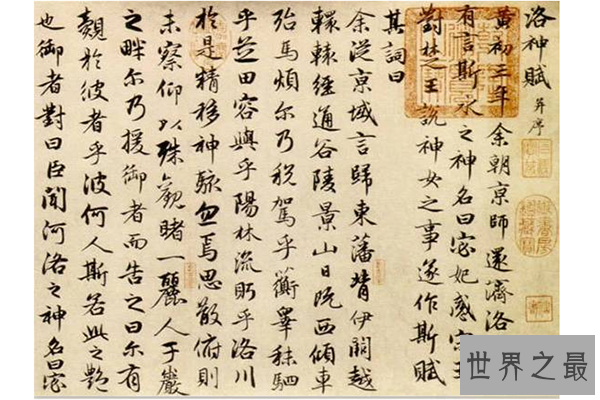 洛神賦 并序
黃初三年余朝京師還濟洛
有言斯水之神名曰宓妃感宋玉
對楚之王說神女之事遂作斯賦
其詞曰
余從京域言歸東藩背伊闕越
轘轅經通谷陵景山日既西傾車
殆馬煩尔乃稅駕乎蘅皋秣駟
乎芝田容與乎陽林流眄乎洛川
於是精移神駭忽焉思散俯則
未察仰以殊觀睹一麗人于巖
之畔尔乃援御者而告之曰尔有
覿於彼者乎彼何人斯若此之艷
也御者對曰臣聞河洛之神名曰宓
世界之最